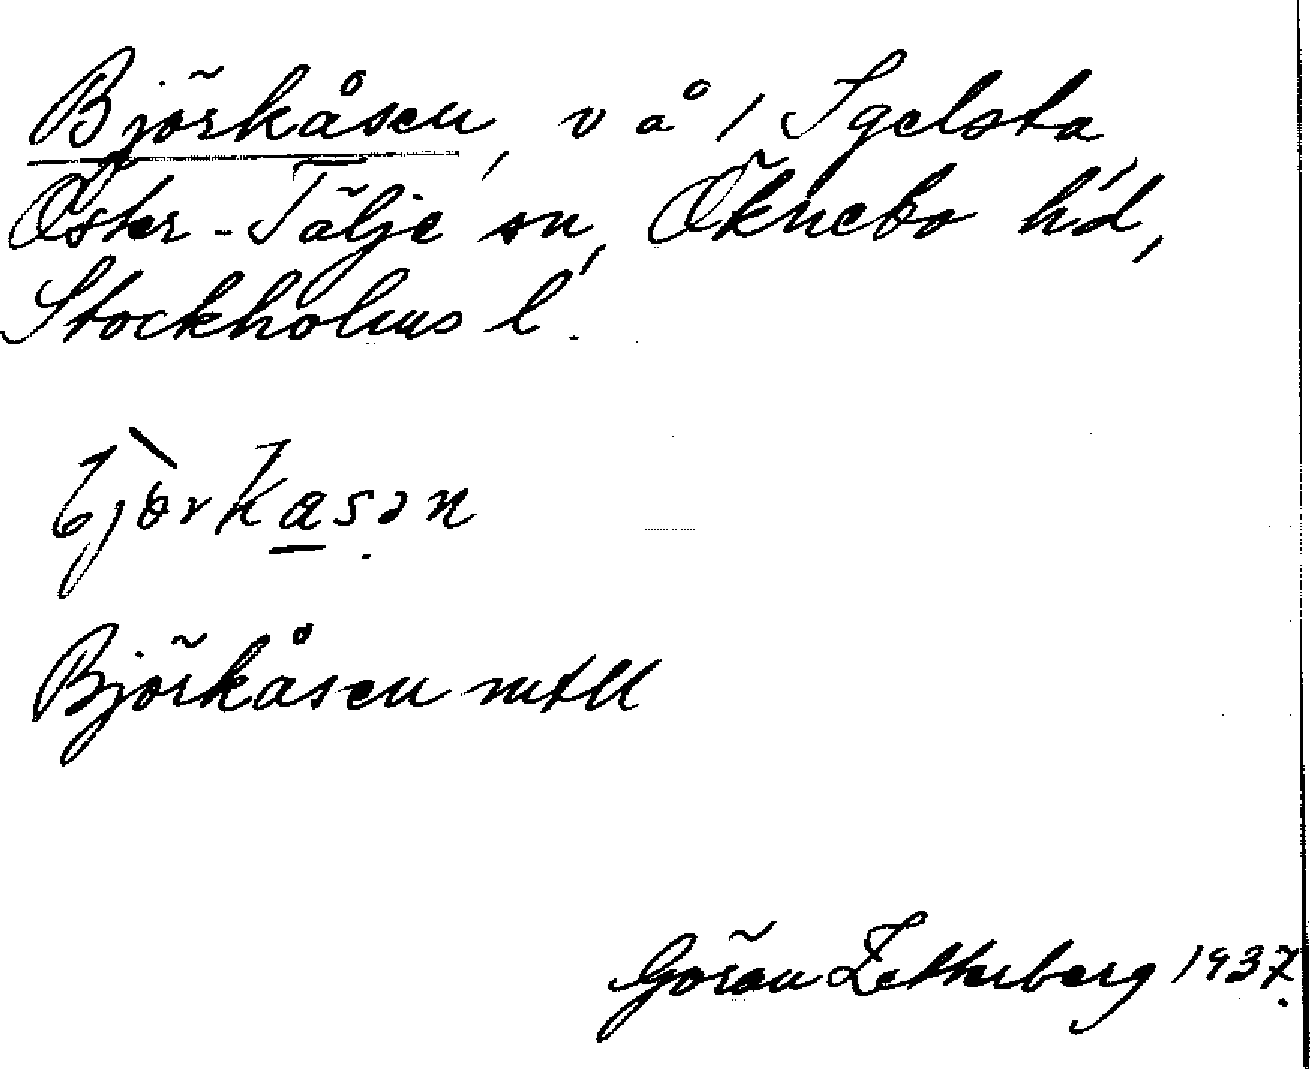 Björkåsen, v å / Igelsta
Öster-Tälje sn, Öknebo hd,
Stockholms l.
Björkåsen mtll
Göran Zetterberg 1937.